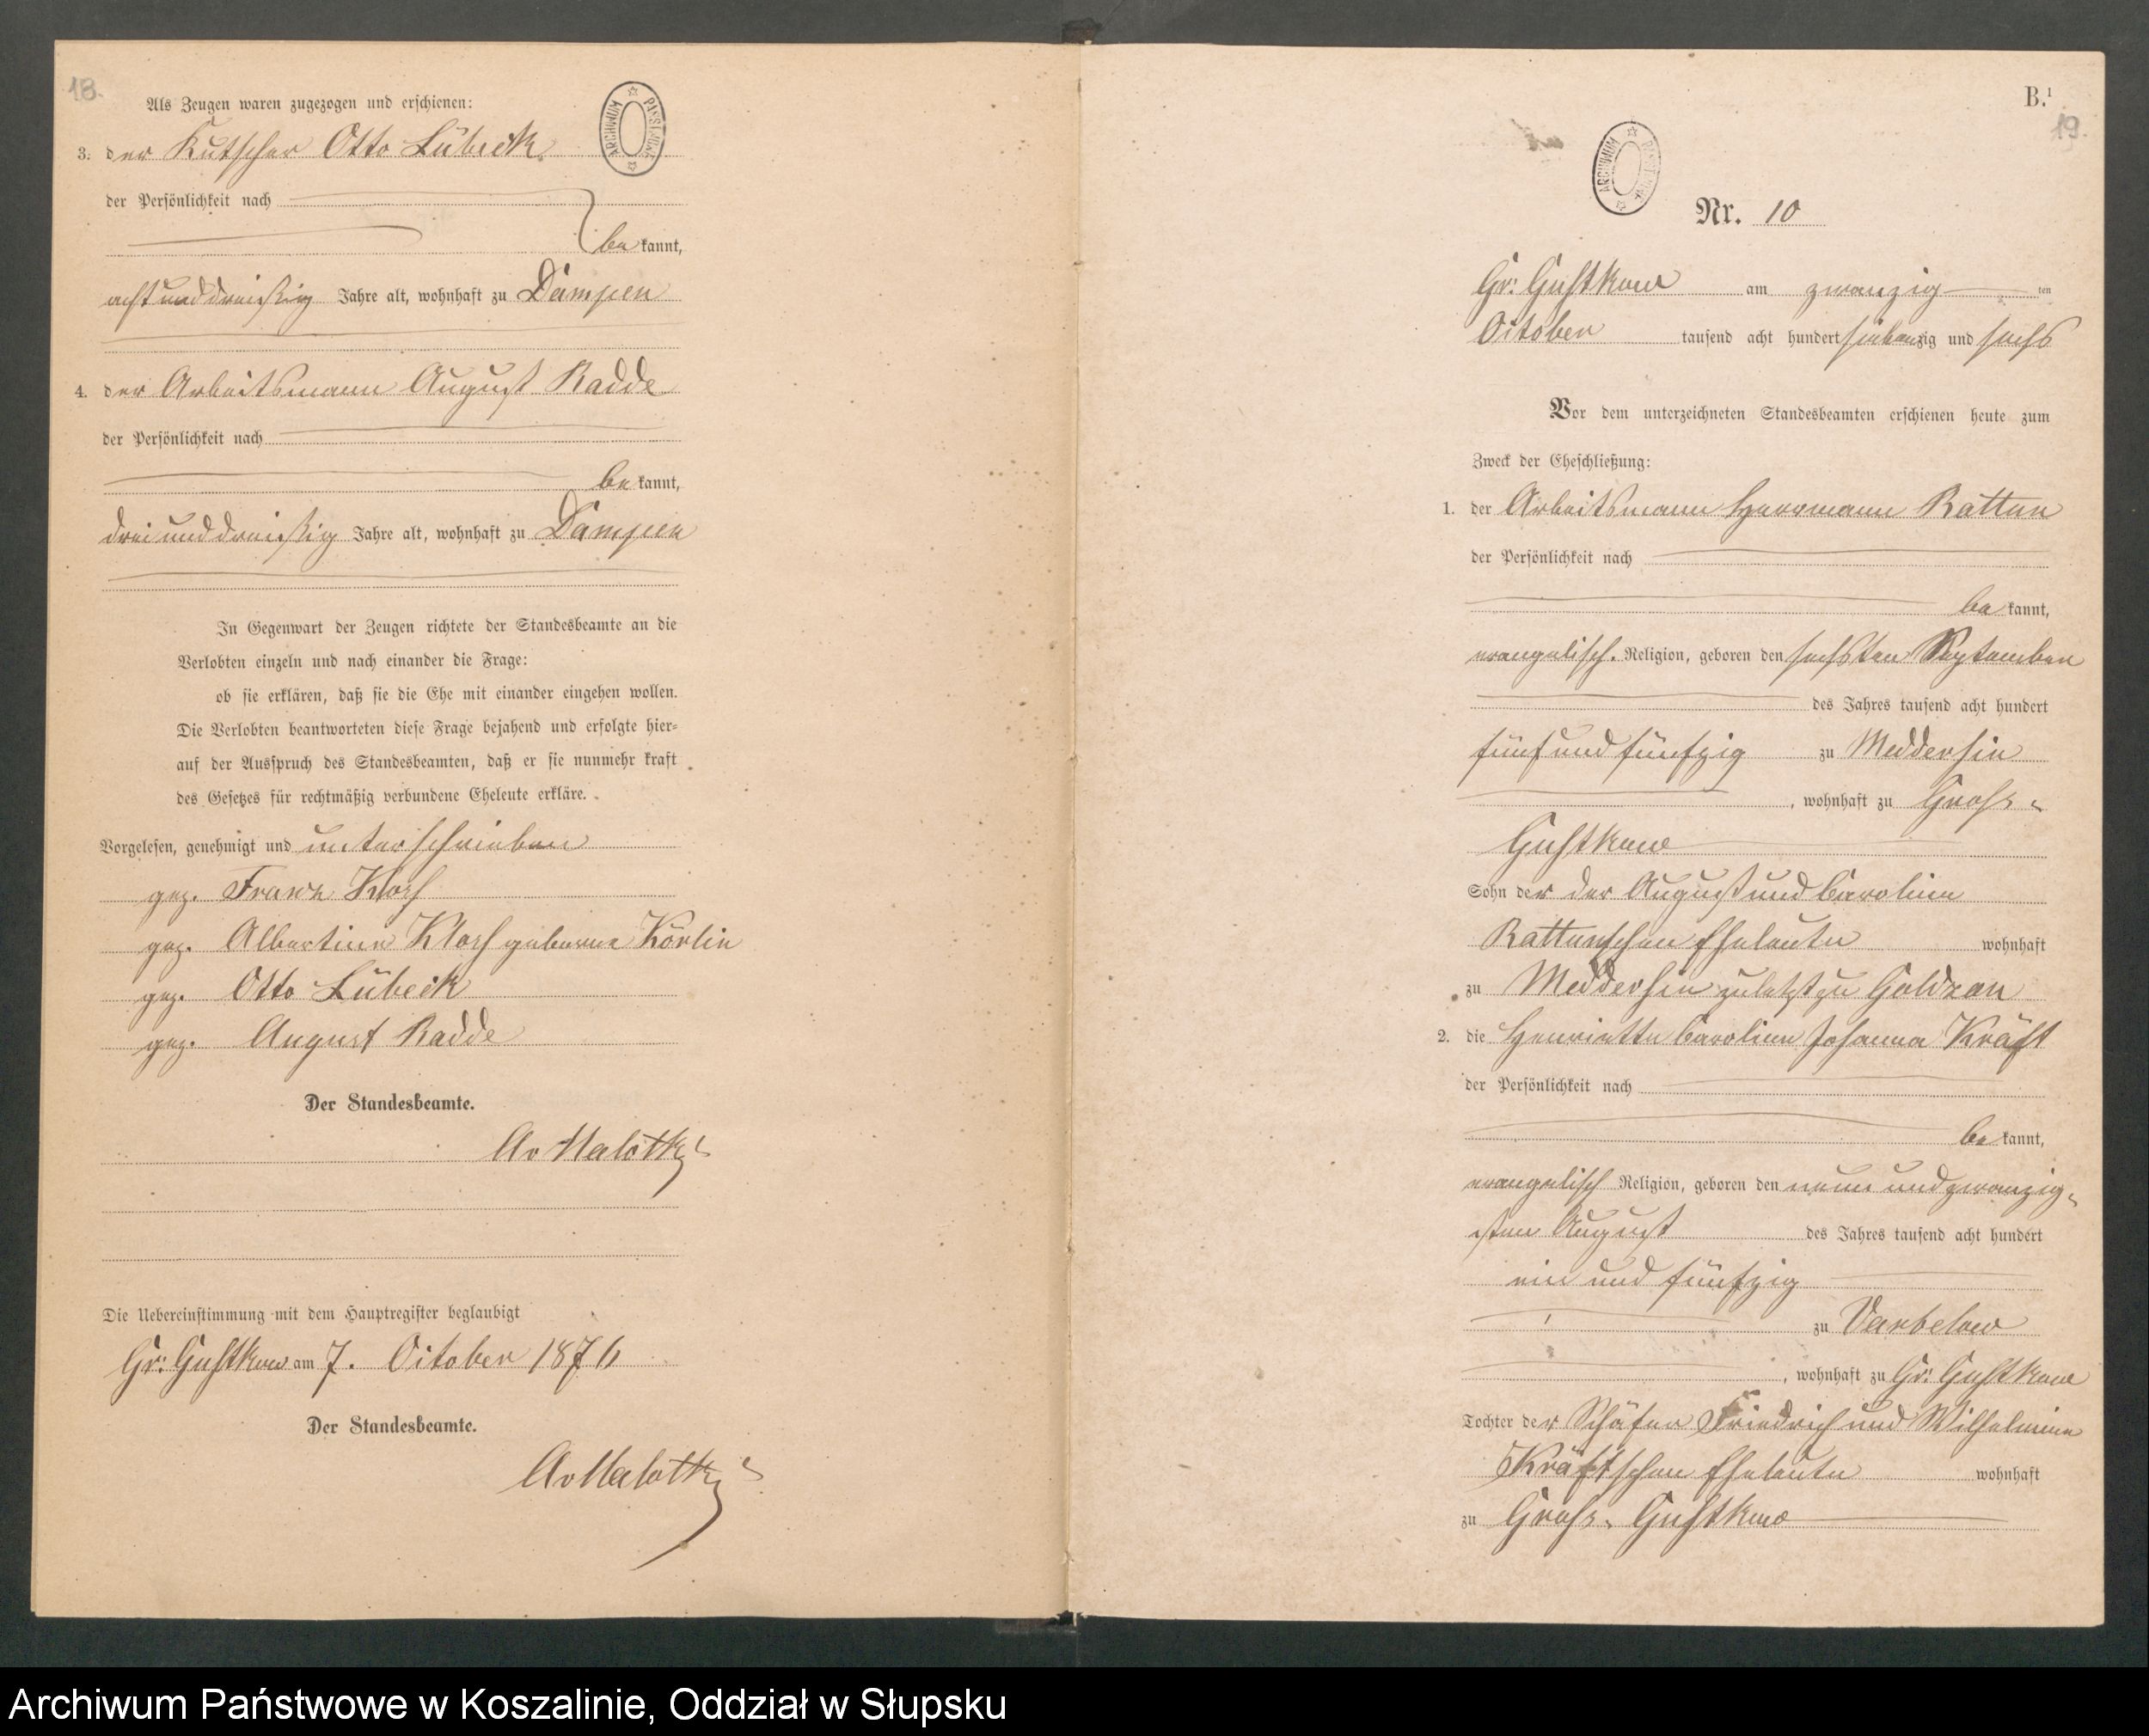 18.
Als Zeugen waren zugezogen und erschienen:
ARCHIWUM PAŃSTWOWE
3. der Kutscher Otto Lübeck
der Persönlichkeit nach
be kannt,
achtunddreißig Jahre alt, wohnhaft zu Dampen
4. der Arbeitsmann August Radde
der Persönlichkeit nach
be kannt,
dreiunddreißig Jahre alt, wohnhaft zu Dampen
In Gegenwart der Zeugen richtete der Standesbeamte an die
Verlobten einzeln und nach einander die Frage:
ob sie erklären, daß sie die Ehe mit einander eingehen wollen.
Die Verlobten beantworteten diese Frage bejahend und erfolgte hier=
auf der Ausspruch des Standesbeamten, daß er sie nunmehr kraft
des Gesetzes für rechtmäßig verbundene Eheleute erkläre.
Vorgelesen, genehmigt und unterschrieben
gez. Franz Klosch
gez. Albertine Klosch geborene Körlin
gez. Otto Lübeck
gez. August Radde
Der Standesbeamte.
Av Malottky
Die Uebereinstimmung mit dem Hauptregister beglaubigt
Gr: Gustkow am 7. October 1876
Der Standesbeamte.
AvMalottky
B.¹
19.
ARCHIWUM PAŃSTWOWE
Nr. 10
Gr: Gustkow am zwanzig ten
October tausend acht hundert siebenzig und sechs
Vor dem unterzeichneten Standesbeamten erschienen heute zum
Zweck der Eheschließung:
1. der Arbeitsmann Herrmann Rattun
der Persönlichkeit nach
be kannt,
evangelisch. Religion, geboren den sechsten September
des Jahres tausend acht hundert
fünf und fünfzig zu Meddersin
, wohnhaft zu Gross-
Gustkow
Sohn der der August und Caroline
Rattunschen Eheleute wohnhaft
zu Meddersin zuletzt zu Goldzon
2. die Henriette Caroline Johanna Kräft
der Persönlichkeit nach
be kannt,
evangelisch Religion, geboren den neun und zwanzig-
sten August des Jahres tausend acht hundert
ein und fünfzig
zu Varbelow
, wohnhaft zu Gr: Gustkow
Tochter der Schäfer Friedrich und Wilhelmine
Kräftschen Eheleute wohnhaft
zu Gross- Gustkow
Archiwum Państwowe w Koszalinie, Oddział w Słupsku